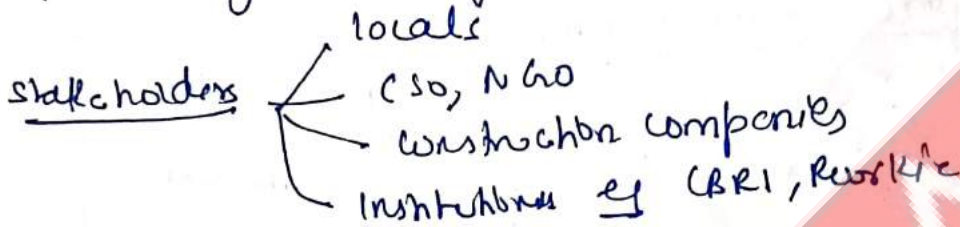 locals
stakeholders
CSO, NGO
construction companies
Institutions eg CBRI, Roorkie